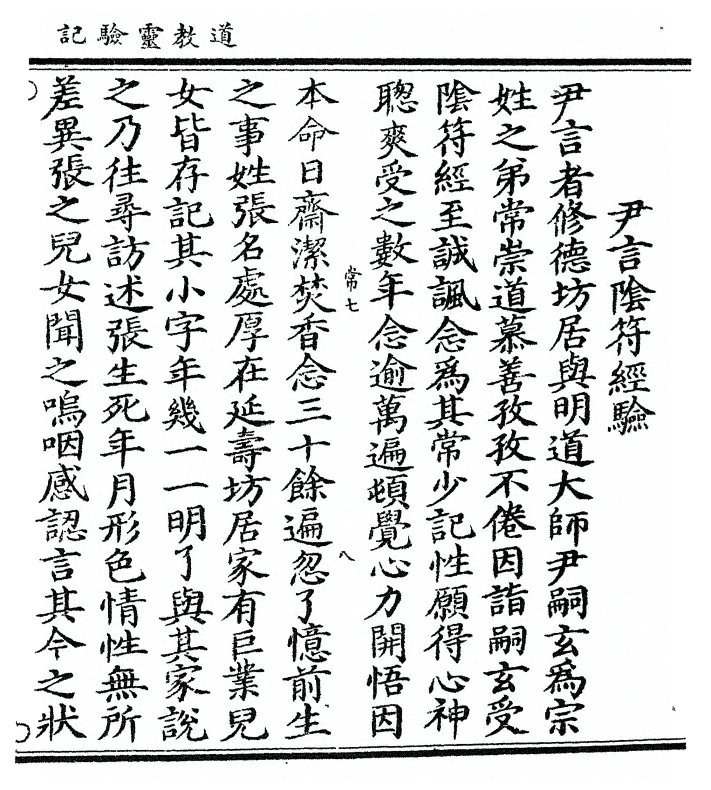 道教靈驗記
尹言陰符經驗
尹言者修德坊居與明道大師尹嗣玄爲宗
姓之弟常崇道慕善孜孜不倦因詣嗣玄受
陰符經至誠諷念爲其常少記性願得心神
聰爽受之數年念逾萬遍頓覺心力開悟因
常七
八
本命日齋潔焚香念三十餘遍忽了憶前生
之事姓張名處厚在延壽坊居家有巨業兒
女皆存記其小字年幾一一明了與其家說
之乃往尋訪述張生死年月形色情性無所
差異張之兒女聞之嗚咽感認言其今之狀